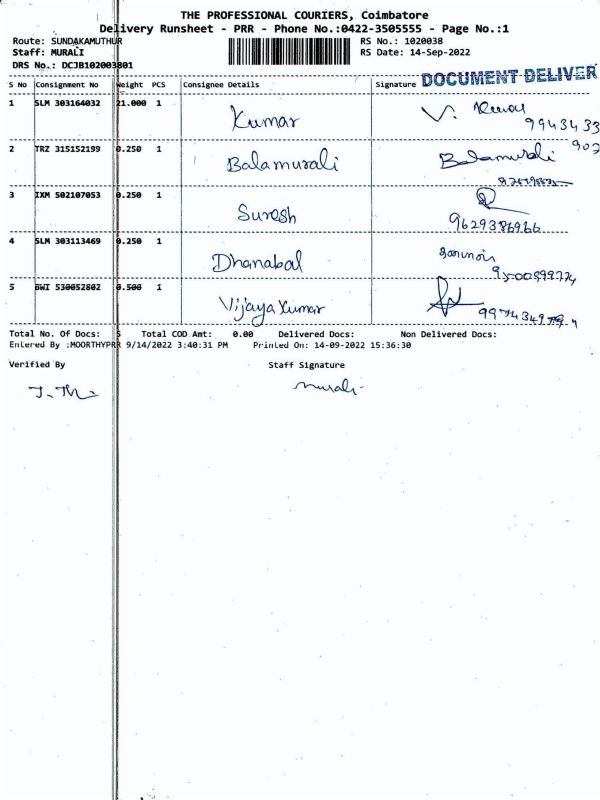 THE PROFESSIONAL COURIERS, Coimbatore
Delivery Runsheet - PRR - Phone No.:0422-3505555 - Page No.:1
Route: SUNDAKAMUTHUR RS No.: 1020038
Staff: MURALI RS Date: 14-Sep-2022
DRS No.: DCJB102003801
DOCUMENT DELIVER
S No Consignment No Weight PCS Consignee Details Signature
1 SLM 303164032 21.000 1 Kumar V.
9943433
2 TRZ 315152199 0.250 1 Balamurali Balamurali 902
3 IXM 502107053 0.250 1 Suresh
9629386966
4 SLM 303113469 0.250 1 Dhanabal
5 BWI 530052802 0.500 1 Vijayakumar
Total No. Of Docs: 5 Total COD Amt: 0.00 Delivered Docs: Non Delivered Docs:
Entered By :MOORTHYPRR 9/14/2022 3:40:31 PM Printed On: 14-09-2022 15:36:30
Verified By Staff Signature
murali